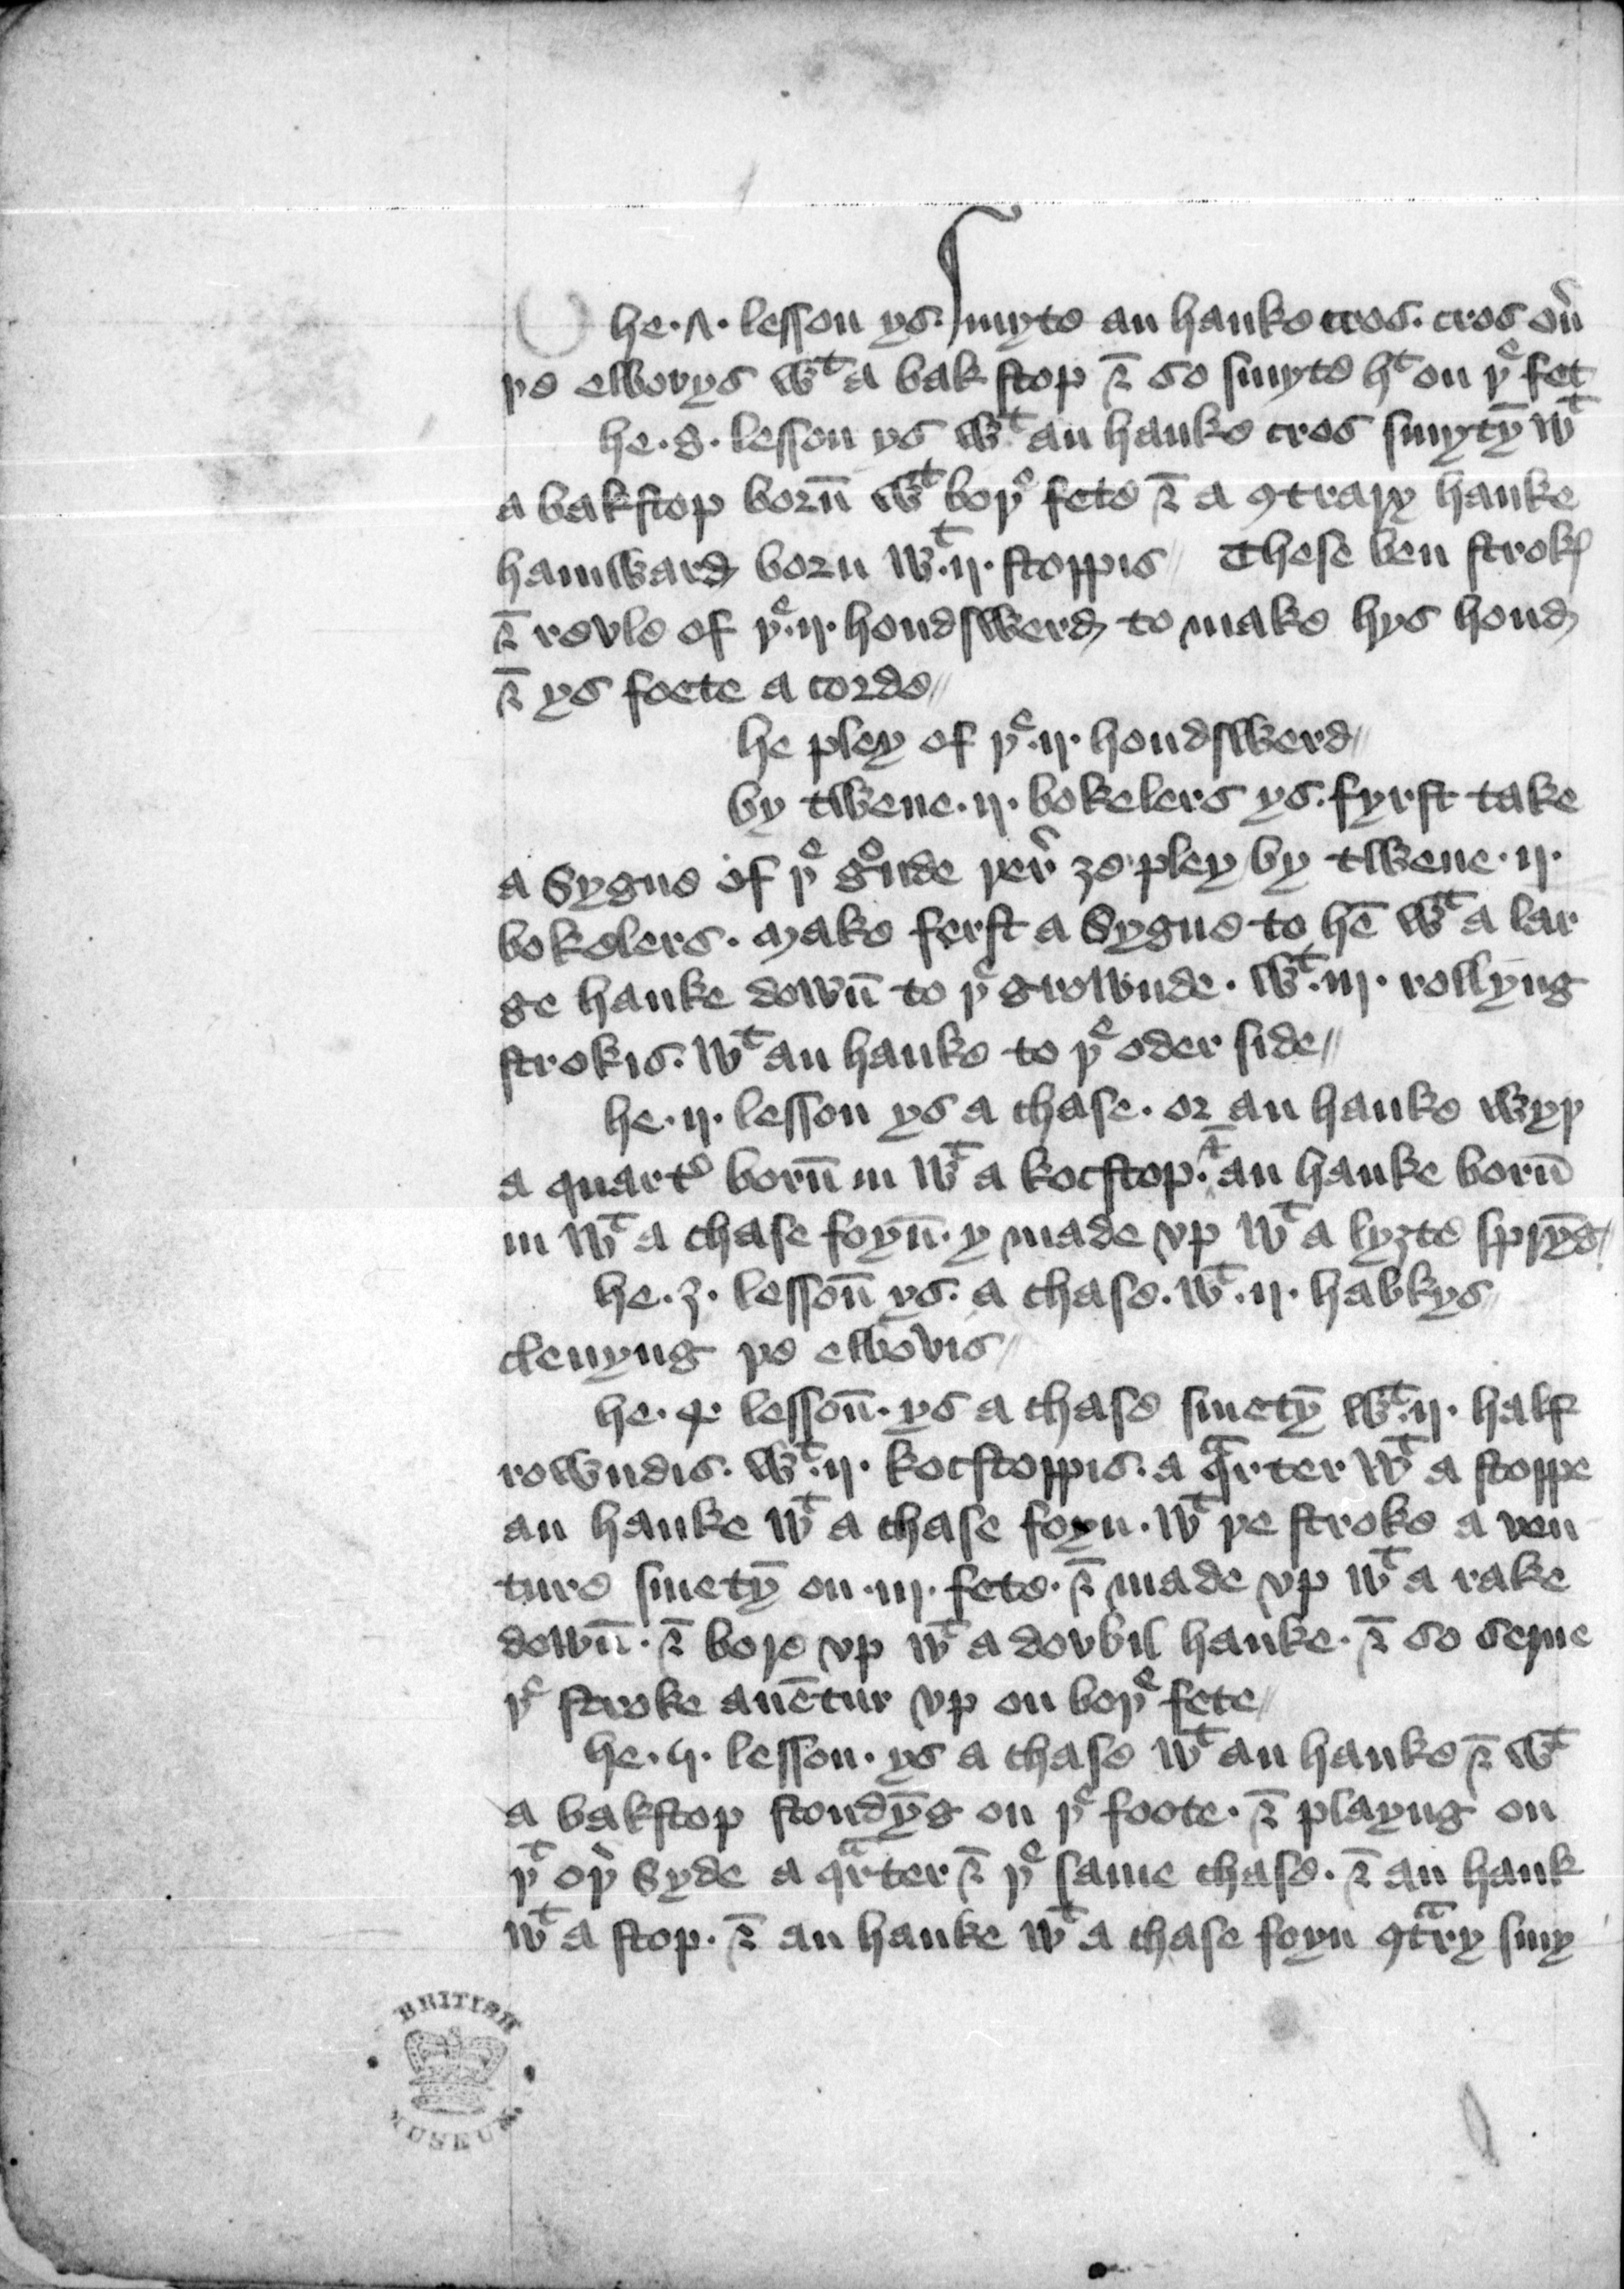 he · ʌ · lesson ys · Smyte an hauke cros · cros ou͛
þe elbovys wᵗ a bak stop ⁊ so smyte hᵗ on þᵉ fet
he · 8 · lesson ys wᵗ an hauke cros smytȳ wᵗ
a bakstop born̄ wᵗ boþᵉ fete ⁊ a ꝯtrary hauke
hamward born wᵗ · ij · stoppis // These ben strokꝭ
⁊ revle of þᵉ · ij · hondswerd to make hys hond
⁊ ys foete a corde //
he pley of þᵉ · ij · hondswerd //
by twene · ij · bokelers ys · fyrst take
a Sygne of þᵉ gᵒnde þer͛ ȝe pley by twene · ij ·
bokelers · make ferst a Sygne to hē wᵗ a lar
ge hauke down̄ to þᵉ grownde · wᵗ · iij · rollyng
strokis · wᵗ an hauke to þᵉ oder side //
he · ij · lesson ys a chase · or an hauke wyþ
a quart͛ born̄ in wᵗ a kocstop · ᵗ an hauke born̄
in wᵗ a chase foyn̄ · y made vp wᵗ a lyȝte sprȳg //
he · 3 · lesson̄ ys · a chase · wᵗ · ij · haukys
clenyng þe elbovis //
he · 4 · lesson̄ · ys a chase smetȳ wᵗ · ij · half
rowndis · wᵗ · ij · kocstoppis · a qᵃrter wᵗ a stoppe
an hauke wᵗ a chase foyn · wᵗ þe stroke a ven
ture smetȳ on · iij · fete · ⁊ made vp wᵗ a rake
down̄ · ⁊ bore vp wᵗ a dovbil hauke · ⁊ so serue
þᵉ stroke auētur vp on boþᵉ fete //
he · 5 · lesson · ys a chase wᵗ an hauke ⁊ wᵗ
a bakstop stondȳg on þᵉ foote · ⁊ playng on
þᵗ oþ͛ Syde a qᵃrter ⁊ þᵉ same chase · ⁊ an hauk
wᵗ a stop · ⁊ an hauke wᵗ a chase foyn ꝯtᵃry smy
BRITISH
MUSEUM